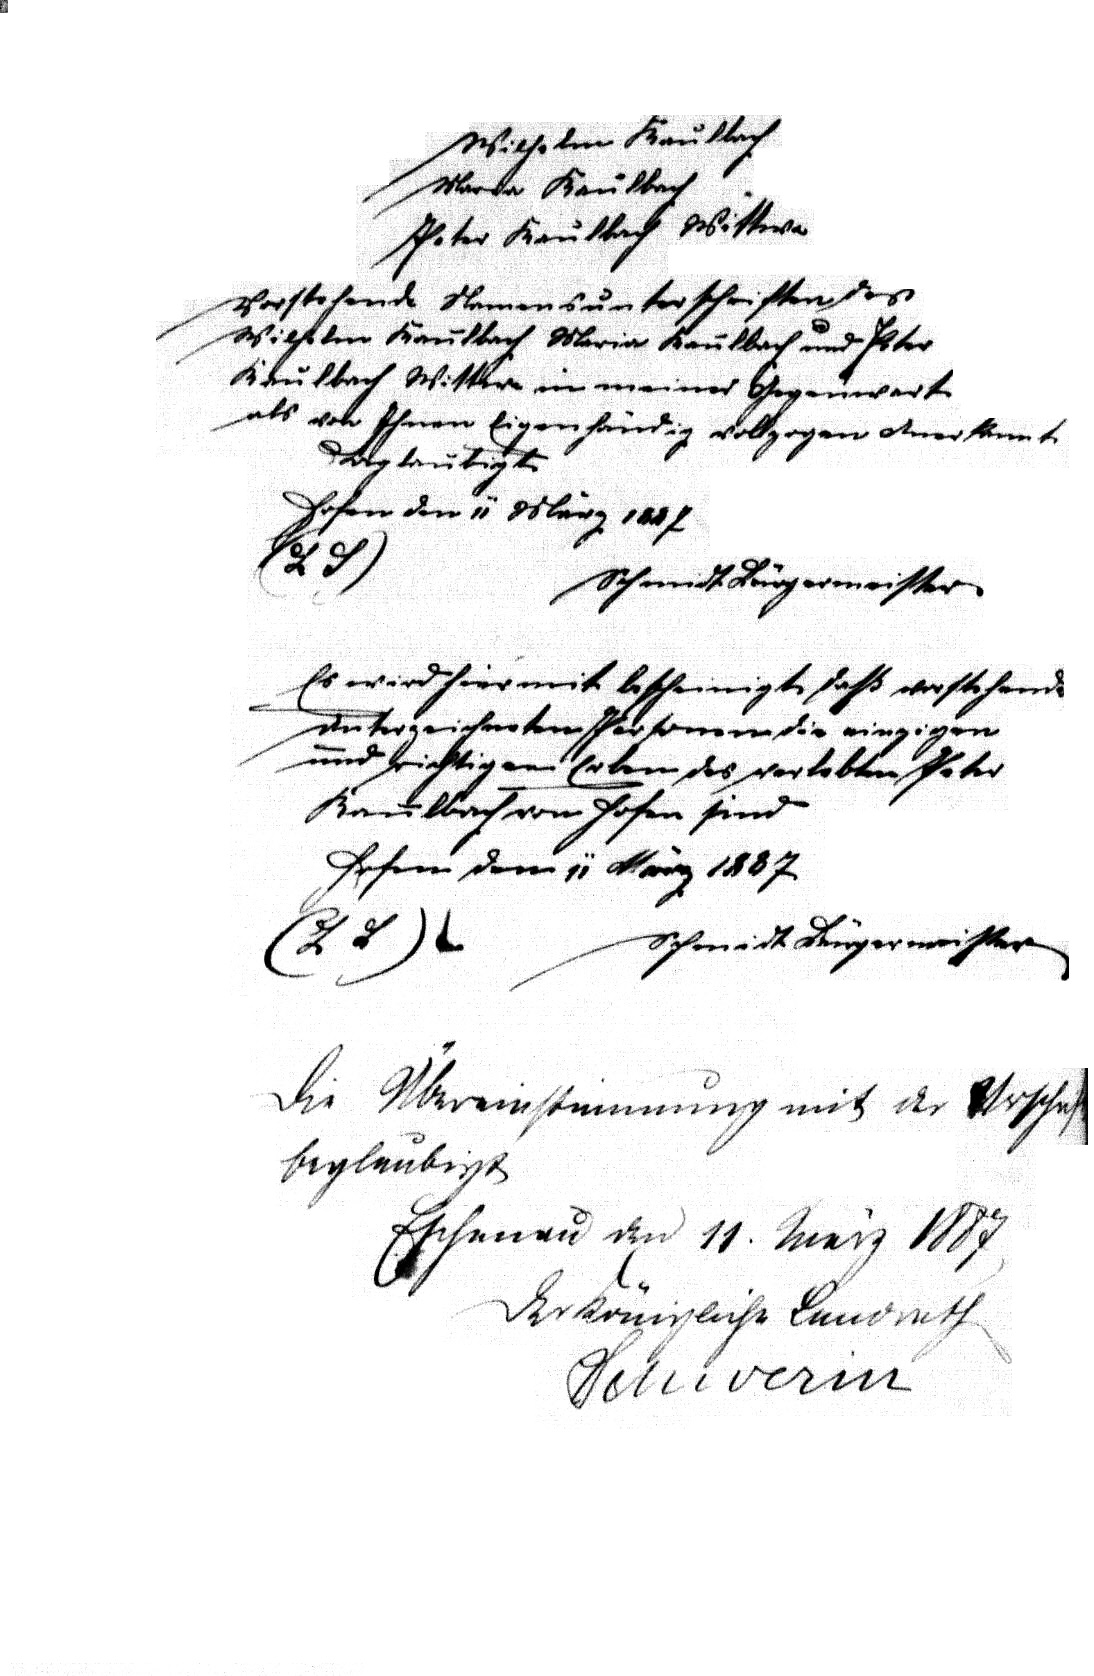 Wilhelm Kaulbach
Maria Kaulbach
Peter Kaulbach Wittwe
Vorstehende Namensunterschriften des
Wilhelm Kaulbach Maria Kaulbach und Peter
Kaulbach Wittwe in meiner Gegenwart
als von Ihnen Eigenhändig vollzogen Anerkannt
Beglaubigt
Hofen den 11 März 1887
(L S)
Schmidt Bürgermeister
Es wird hiermit bescheinigt daß vorstehende
Unterzeichneten Personen die einzigen
und richtigen Erben des verlebten Peter
Kaulbach von Hofen sind
Hofen den 11 März 1887
(L S)
Schmidt Bürgermeister
Die Übereinstimmung mit der
beglaubigt
den 11. März 1887
Der Königliche Landrath
Schwerin